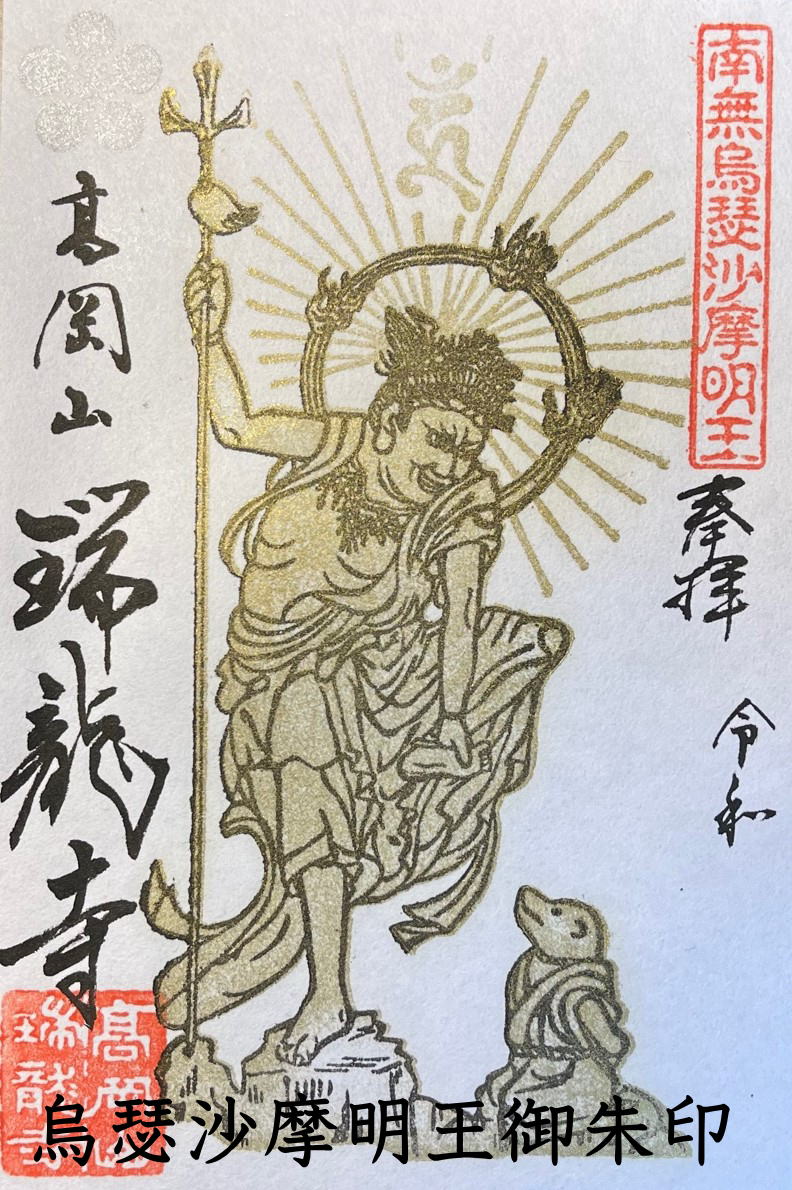 南無烏瑟沙摩明王
奉拝
令和
高岡山
瑞龍寺
高岡山
瑞龍寺
烏瑟沙摩明王御朱印